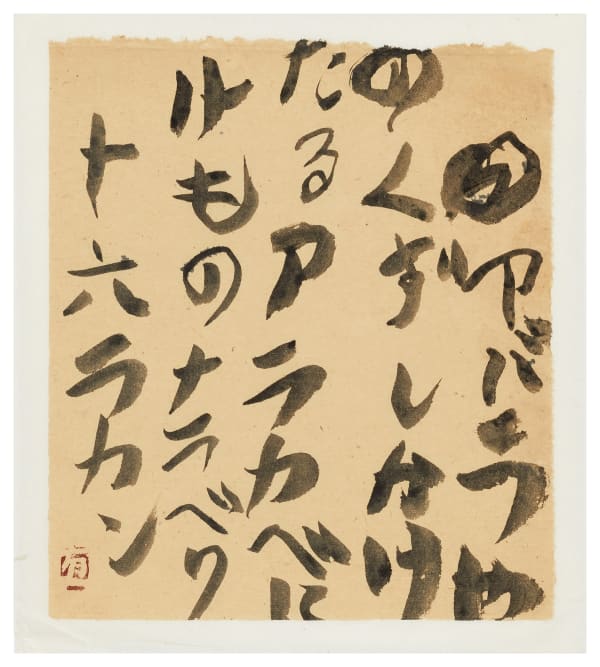 アバラや
のくずしかけ
たるアラカベに
ルものナラベリ
十六ラカン
有一